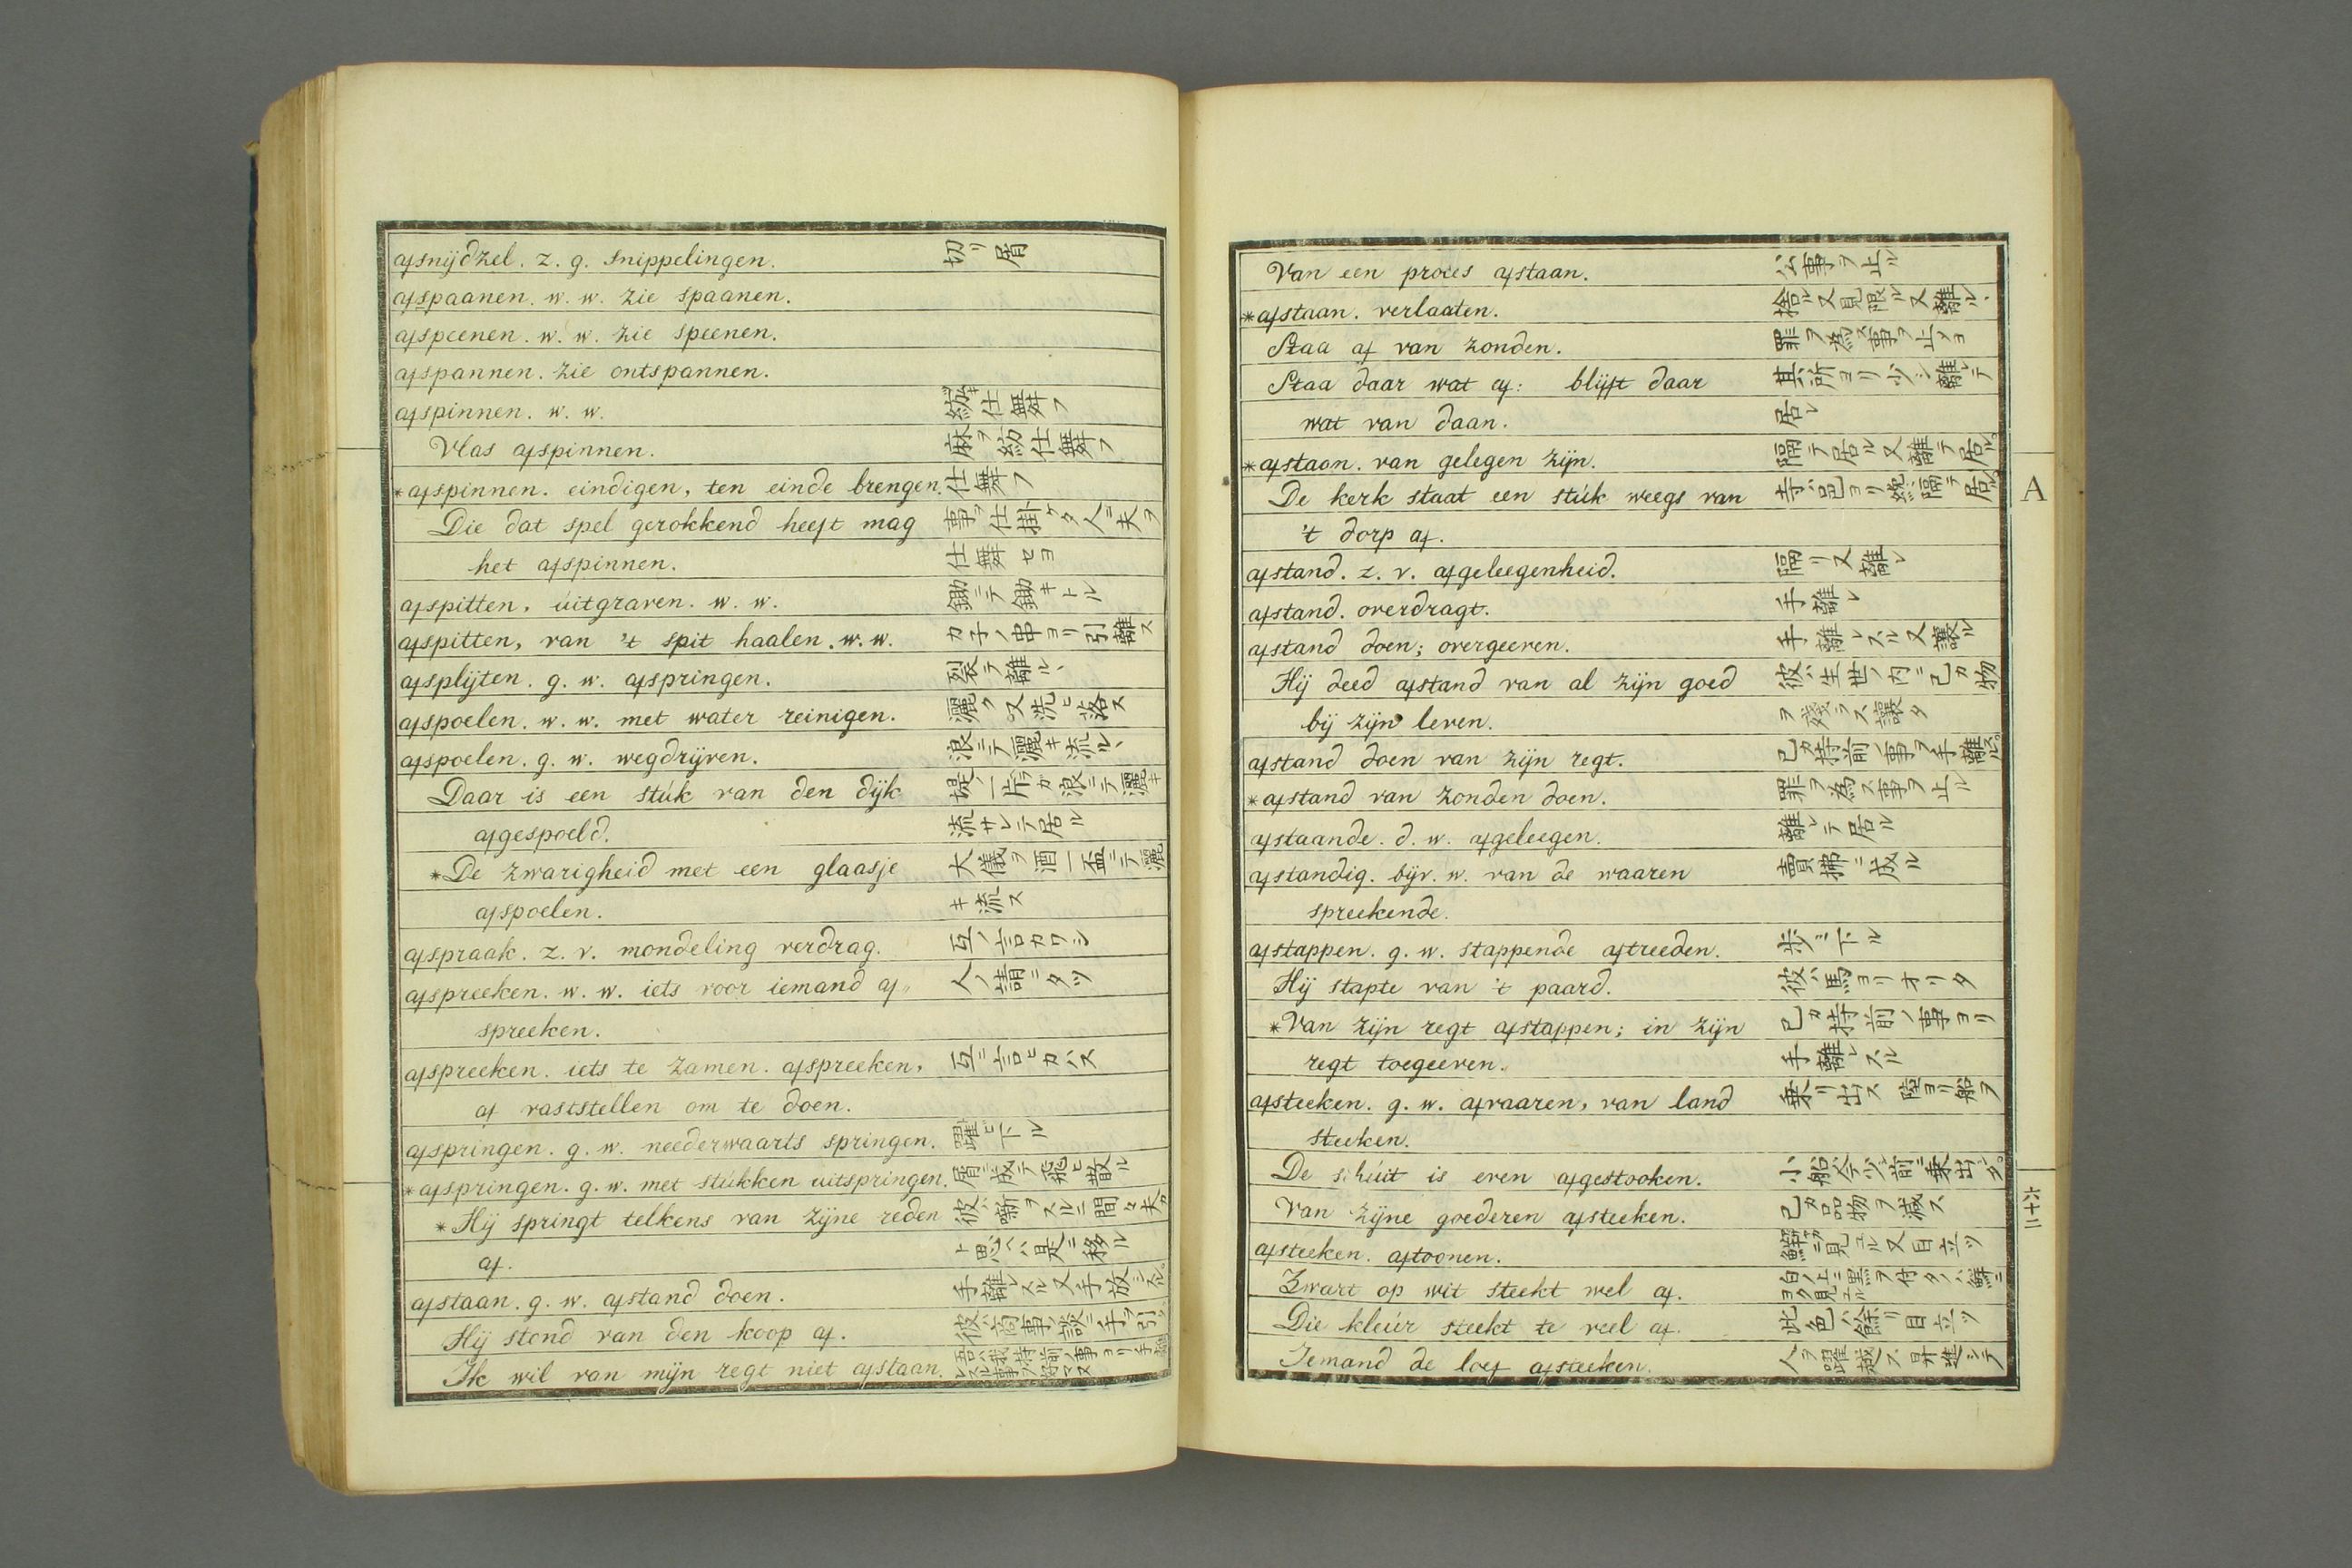 afsnijdzel. z. g. snippelingen. 切リ屑
afspaanen. w. w. zie spaanen.
afspeenen. w. w. zie speenen.
afspannen. zie ontspannen.
afspinnen. w. w. 紡キ仕舞フ
Vlas afspinnen. 麻ヲ紡仕舞フ
*afspinnen. eindigen, ten einde brengen. 仕舞フ
Die dat spel gerokkend heeft mag 事ヲ仕掛ケタ人ニ夫ヲ
het afspinnen. 仕舞セヨ
afspitten, uitgraven. w. w. 鋤ニテ鋤キトル
afspitten, van 't spit haalen. w. w. カ子ノ串ヨリ引離ス
afsplijten. g. w. afspringen. 裂テ離ルヽ
afspoelen. w. w. met water reinigen. 灑ク又洗ヒ落ス
afspoelen. g. w. wegdrijven. 浪ニテ灑キ流ルヽ
Daar is een stúk van den dijk 堤ノ一片ガ浪ニテ灑キ
afgespoeld. 流サレテ居ル
*De zwarigheid met een glaasje 大儀ヲ酒一盃ニテ灑
afspoelen. キ流ス
afspraak. z. v. mondeling verdrag. 互ノ言カワシ
afspreeken. w. w. iets voor iemand af〃 人ノ請ニタツ
spreeken.
afspreeken. iets te zamen. afspreeken, 互ニ言ヒカハス
af vaststellen om te doen.
afspringen. g. w. neederwaarts springen. 躍ヒ下ル
*afspringen. g. w. met stúkken uitspringen. 屑ニ成テ飛ヒ散ル
*Hij springt telkens van zijne reden 彼ハ噺ヲスルニ間々夫カ
af. ト思ヘハ是ニ移ル
afstaan. g. w. afstand doen. 手離レスル又手放シスル。
Hij stond van den koop af. 彼ハ商事ノ談ニ手ヲ引
Ik wil van mijn regt niet afstaan.
Van een proces afstaan. 公事ヲ止ル
*afstaan. verlaaten. 捨ル又見限ル又離ルヽ
Staa af van zonden. 罪ヲ為ス事ヲ止メヨ
Staa daar wat af: blijft daar 其所ヨリ少シ離レテ
wat van daan. 居レ
*afstaan. van gelegen zijn. 隔テ居ル又離テ居ル。
De kerk staat een stúk weegs van 寺ハ邑ヨリ隔テ居ル。
't dorp af.
afstand. z. v. afgeleegenheid. 隔リ又離レ
afstand. overdragt. 手離レ
afstand doen; overgeeven. 手離レスル又讓ル
Hij deed afstand van al zijn goed 彼ハ生世ノ内ニ己カ物
bij zijn leven. ヲ殘ラス讓タ
afstand doen van zijn regt. 己カ持前ノ事ヲ手離スル。
*afstand van zonden doen. 罪ヲ為ス事ヲ止ル
afstaande. d. w. afgeleegen. 離レテ居ル
afstandig. bijv. w. van de waaren 賣拂ニ成ル
spreekende.
afstappen. g. w. stappende aftreeden. 歩ミ下ル
Hij stapte van 't paard. 彼ハ馬ヨリオリタ
*Van zijn regt afstappen; in zijn 己カ持前ノ事ヨリ
regt toegeeven. 手離レスル
afsteeken. g. w. afvaaren, van land 乗リ出ス陸ヨリ船ヲ
steeken.
De schúit is even afgestooken. 小船今少シ前ニ乗出シタ。
Van zijne goederen afsteeken. 己カ品物ヲ減ス
afsteeken. aftoonen. 鮮カニ見ユル又目立ツ
Zwart op wit steekt wel af. 白ノ上ニ黒ヲ付タノハ鮮ニヨク見ユル
Die kleúr steekt te veel af. 此色ハ餘リ目立ツ
Iemand de loef afsteeken. 人ヲ躍越ス昇進シテ
A
二十六